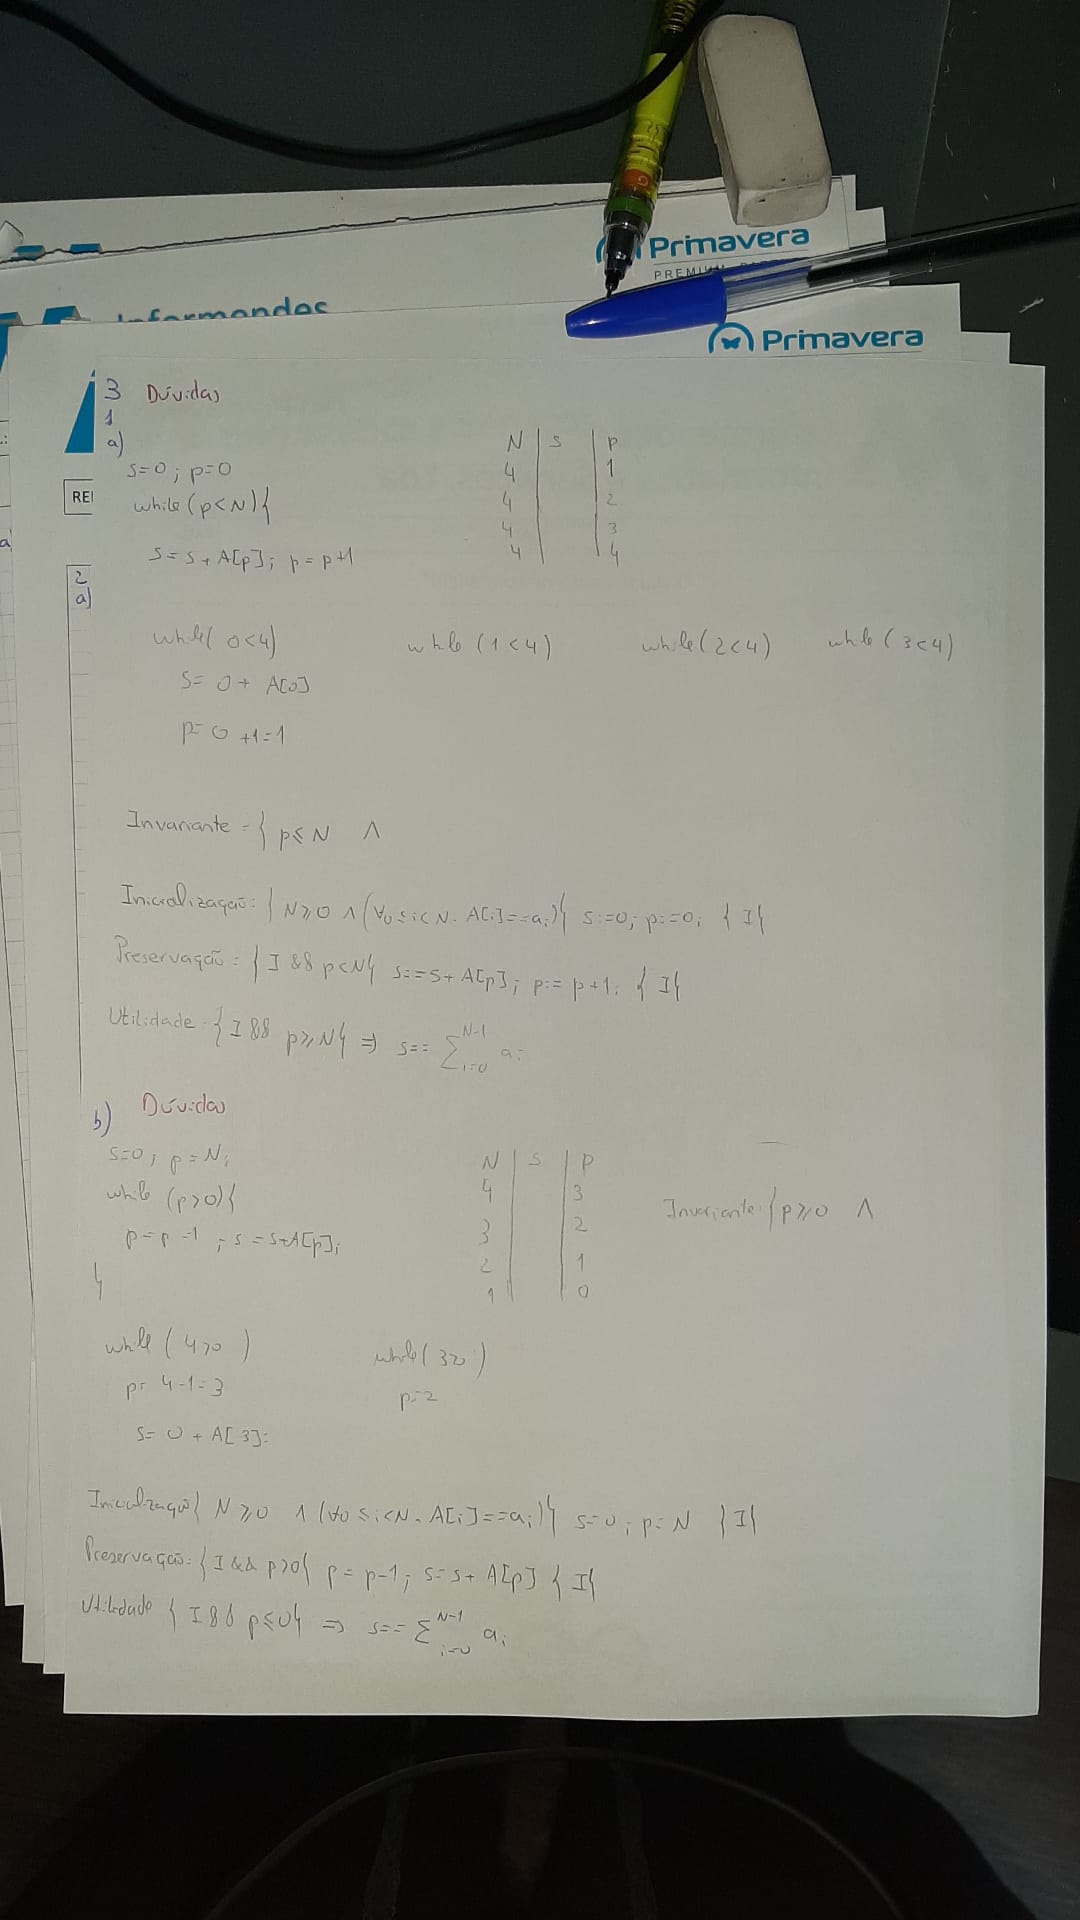 Primavera
PREMIUM
Informandos
Primavera
3 Dúvidas
1
a)
s=0; p=0
while (p<N){
s=s+A[p]; p=p+1
N | s | p
4 | | 1
4 | | 2
4 | | 3
4 | | 4
REI
2
a)
while( 0<4) while (1<4) while(2<4) while (3<4)
s= 0+ A[0]
p= 0 +1=1
Invariante = { p≤N ∧
Inicialização: { N≥0 ∧ (∀0≤i<N. A[i]==ai)} s:=0; p:=0; { I}
Preservação: { I && p<N} s:=s+A[p]; p:= p+1; { I}
Utilidade { I && p≥N} => s== Σ^{N-1}_{i=0} ai
b) Dúvidas
s=0; p=N;
while (p>0){
p=p-1; s=s+A[p];
}
N | s | p
4 | | 3
3 | | 2
2 | | 1
1 | | 0
Invariante: { p≥0 ∧
while ( 4>0 ) while( 3>0 )
p= 4-1=3 p=2
s= 0 + A[3]=
Inicialização{ N≥0 ∧ (∀0≤i<N. A[i]==ai)} s=0; p=N {I}
Preservação: { I && p>0} p= p-1; s=s+ A[p] { I}
Utilidade { I && p≤0} => s== Σ^{N-1}_{i=0} ai